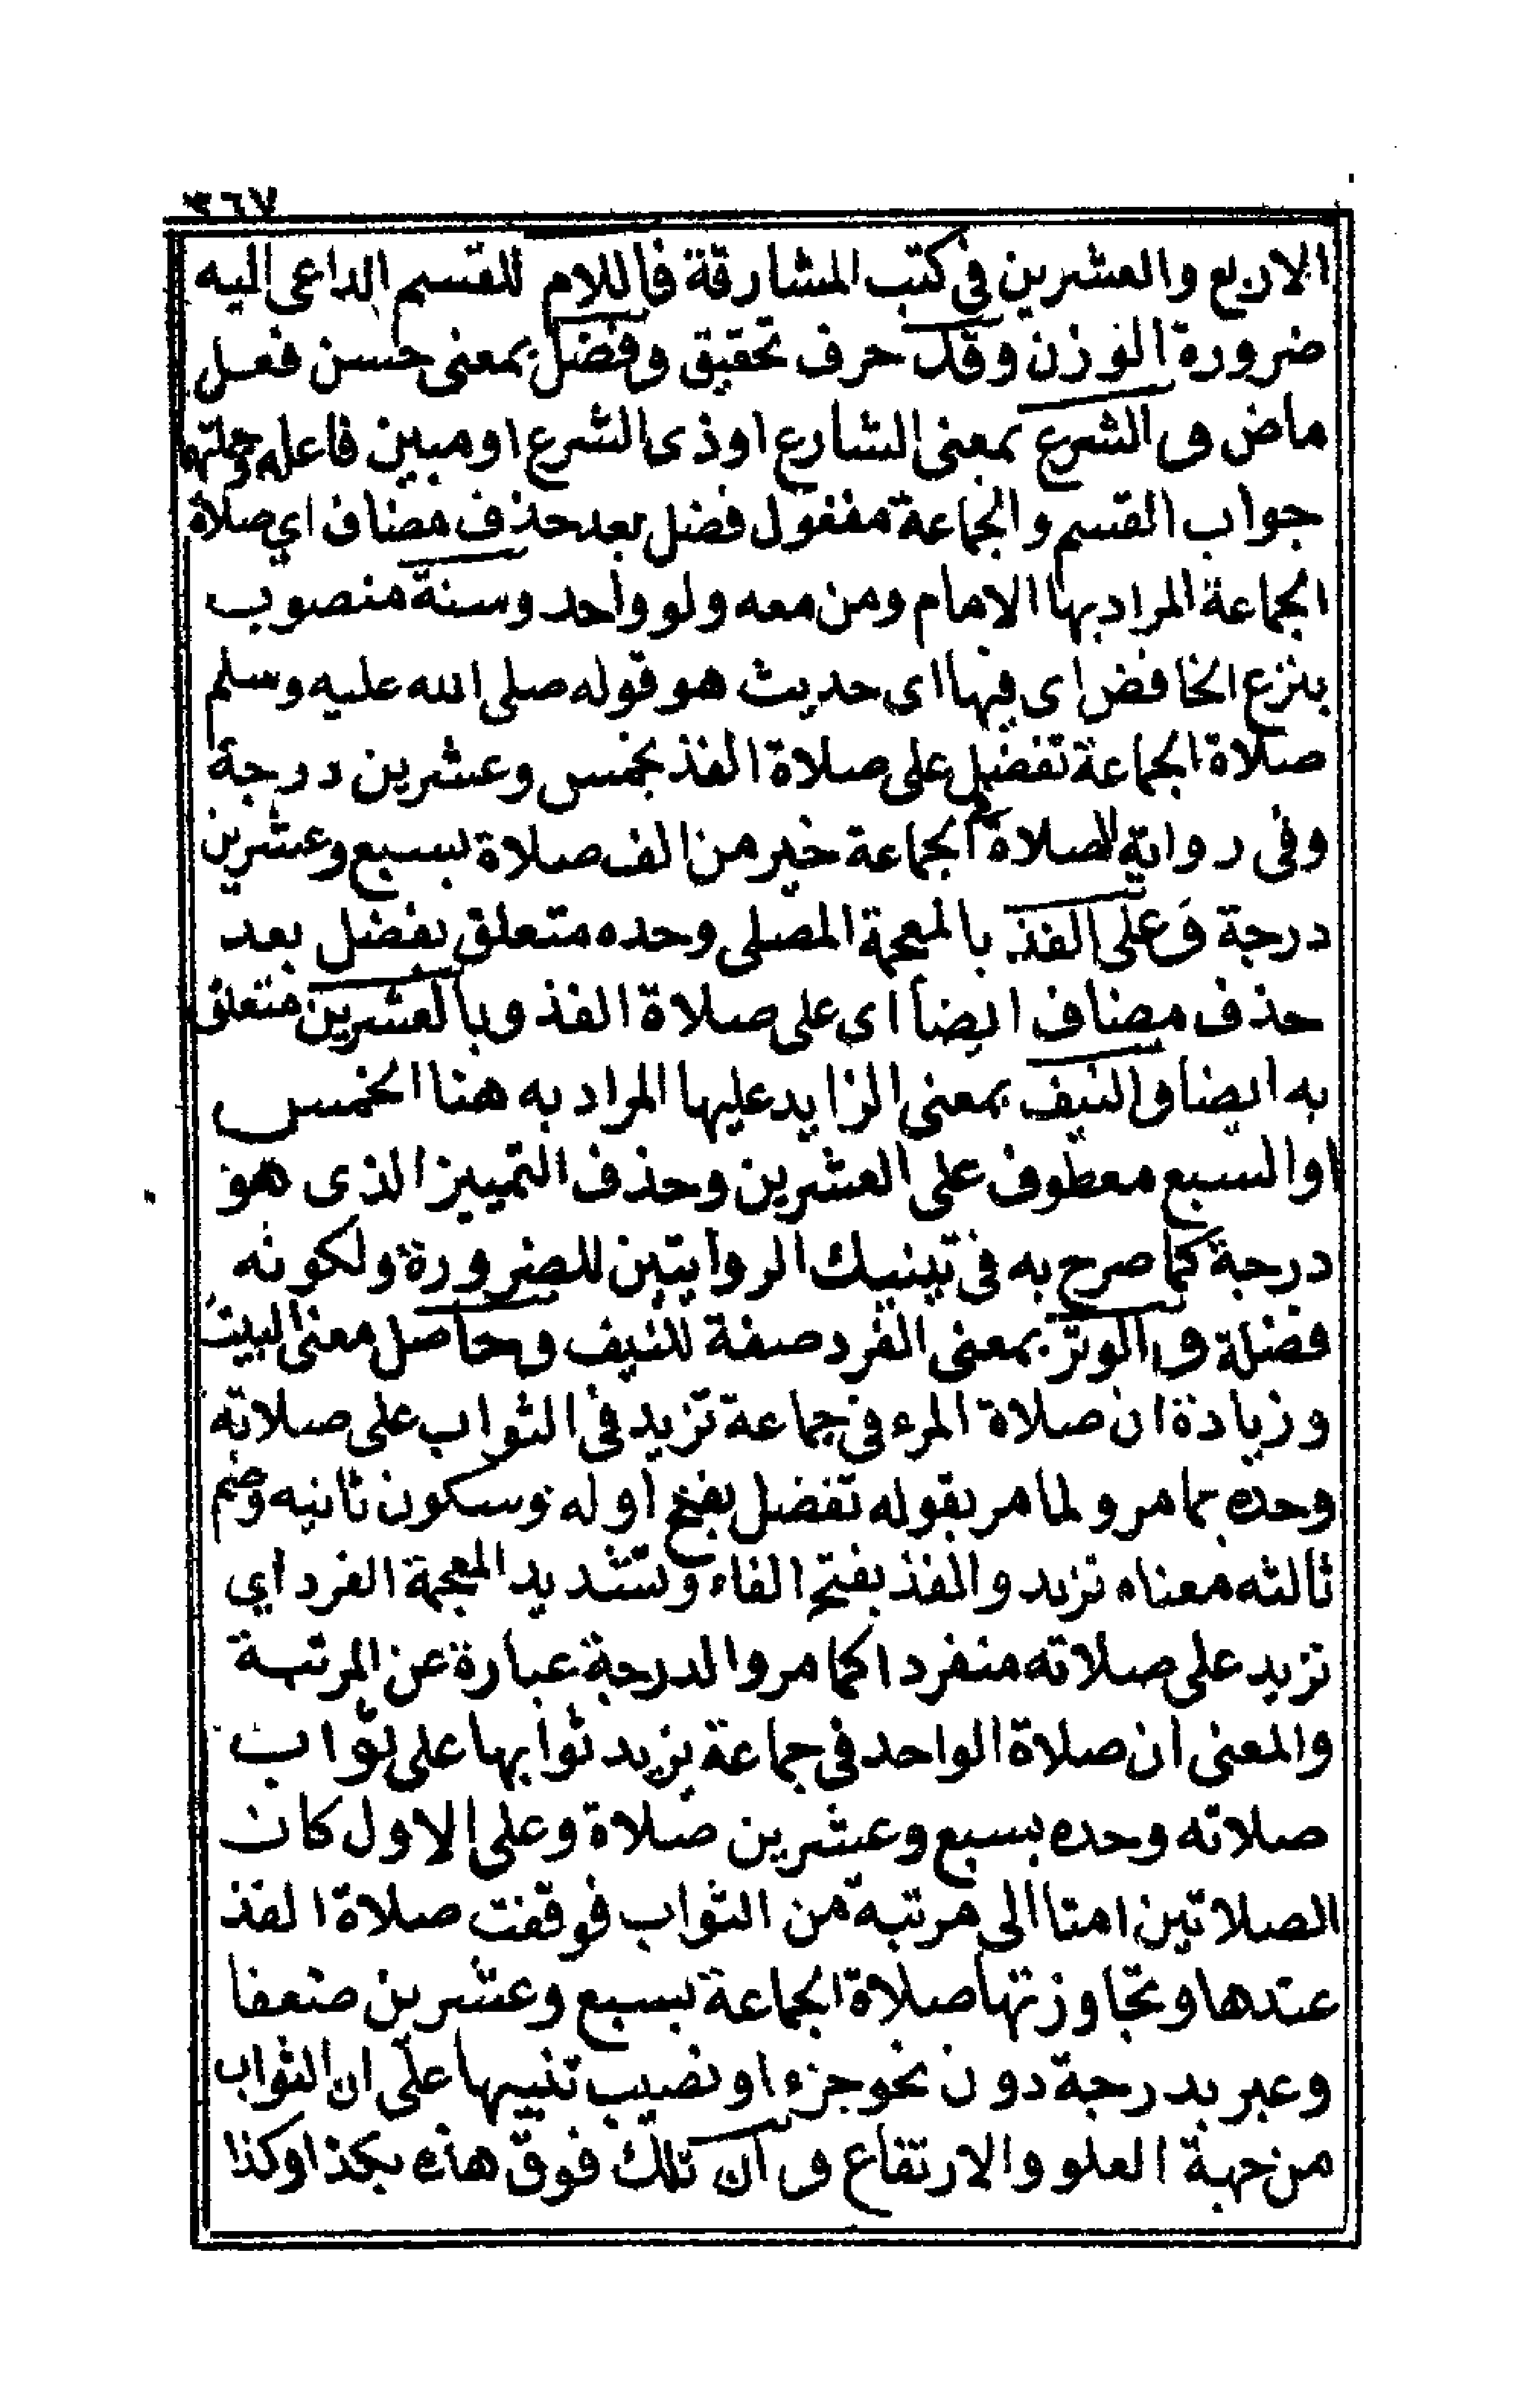 ٣٦٧
الاربع والعشرين في كتب المشارقة فاللام للقسم الداعى اليه
ضرورة الوزن وقد حرف تحقيق وفضل بمعنى حسن فعل
ماض والشرع بمعنى الشارع اوذى الشرع اومبين فاعله وجملتها
جواب القسم والجماعة مفغول فضل بعد حذف مضاف اي صلاة
الجماعة المراد بها الامام ومن معه ولو واحد وسنة منصوب
بنزع الخافض اى فيها اى حديث هو قوله صلى الله عليه وسلم
صلاة الجماعة تفضل على صلاة الفذ بخمس وعشرين درجة
وفى رواية لصلاة الجماعة خير من الف صلاة بسبع وعشرين
درجة وعلى الفذ بالمعجمة المصلى وحده متعلق بفضل بعد
حذف مضاف ايضا اى على صلاة الفذ وبالعشرين متعلق
به ايضا والنيف بمعنى الزايد عليها المراد به هنا الخمس
اوالسبع معطوف على العشرين وحذف التمييز الذى هو
درجة كما صرح به فى تينيك الروايتين للضرورة ولكونه
فضلة والوتر بمعنى الفرد صفة للنيف وحاصل معنى البيت
وزيادة ان صلاة المرء في جماعة تزيد فى الثواب على صلاته
وحده بمامر ولمامر بقوله تفضل بفتح اوله وسكون ثانيه وضم
ثالثه معناه تزيد والفذ بفتح الفاء وتشديد المعجمة الفرد اي
تزيد على صلاته منفردا كمامر والدرجة عبارة عن المرتبة
والمعنى ان صلاة الواحد فى جماعة يزيد ثوابها على ثواب
صلاته وحده بسبع وعشرين صلاة وعلى الاول كان
الصلاتين امتا الى مرتبة من الثواب فوقفت صلاة الفذ
عندها وتجاوزتها صلاة الجماعة بسبع وعشرين ضعفا
وعبر بدرجة دون نحو جزء او نصيب تنبيها على ان الثواب
من جهة العلو والارتفاع وان تلك فوق هذه بكذا وكذا